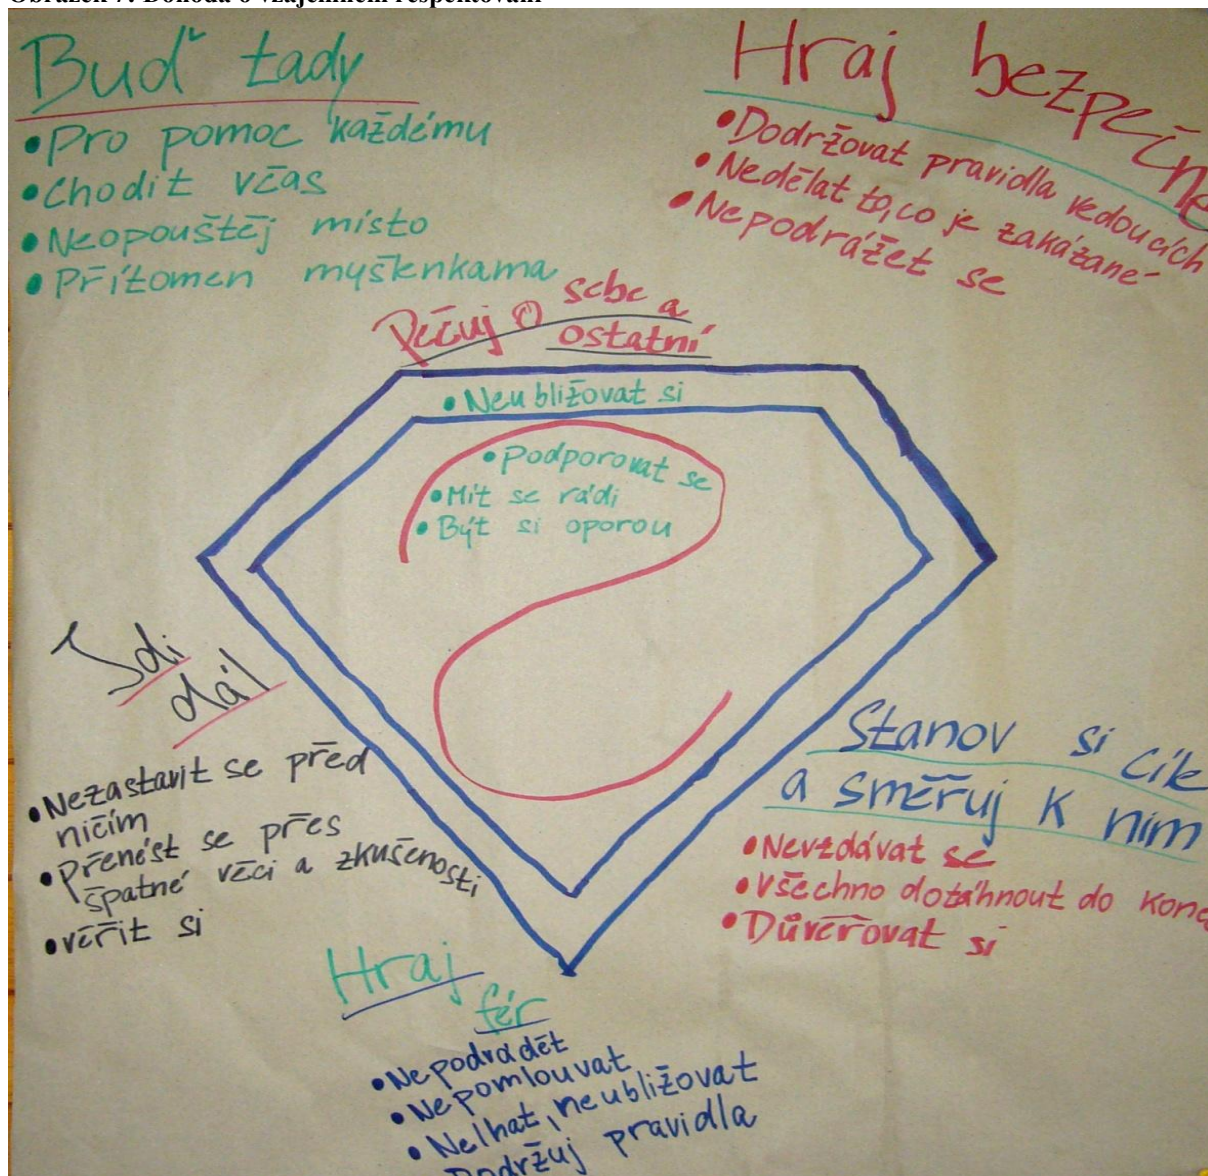 Obrázek 7: Dohoda o vzájemném respektování
Buď tady
•Pro pomoc každému
•Chodit včas
•Neopouštěj místo
•Přítomen myšlenkama
Hraj bezpečně
•Dodržovat pravidla vedoucích
•Nedělat to, co je zakázané
•Nepodrážet se
Pečuj o sebe a
ostatní
•Neubližovat si
•Podporovat se
•Mít se rádi
•Být si oporou
Jdi
dál
•Nezastavit se před
ničím
•Přenést se přes
špatné věci a zkušenosti
•věřit si
Stanov si cíle
a směřuj k nim
•Nevzdávat se
•Všechno dotáhnout do konc
•Důvěřovat si
Hraj
fér
•Nepodrádět
•Nepomlouvat
•Nelhat, neubližovat
Dodržuj pravidla